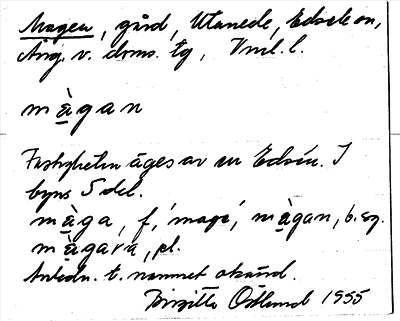 Magen, gård, Utanede, Edsele sn,
Ång. v. doms. tg, Vnl. l.
màgan
Fastigheten äges av en Edsån. I
byns S del.
màga, f, 'mage', màgan, b. sg.
màgara, pl.
Anledn. t. namnet okänd.
Birgitta Östlund 1955